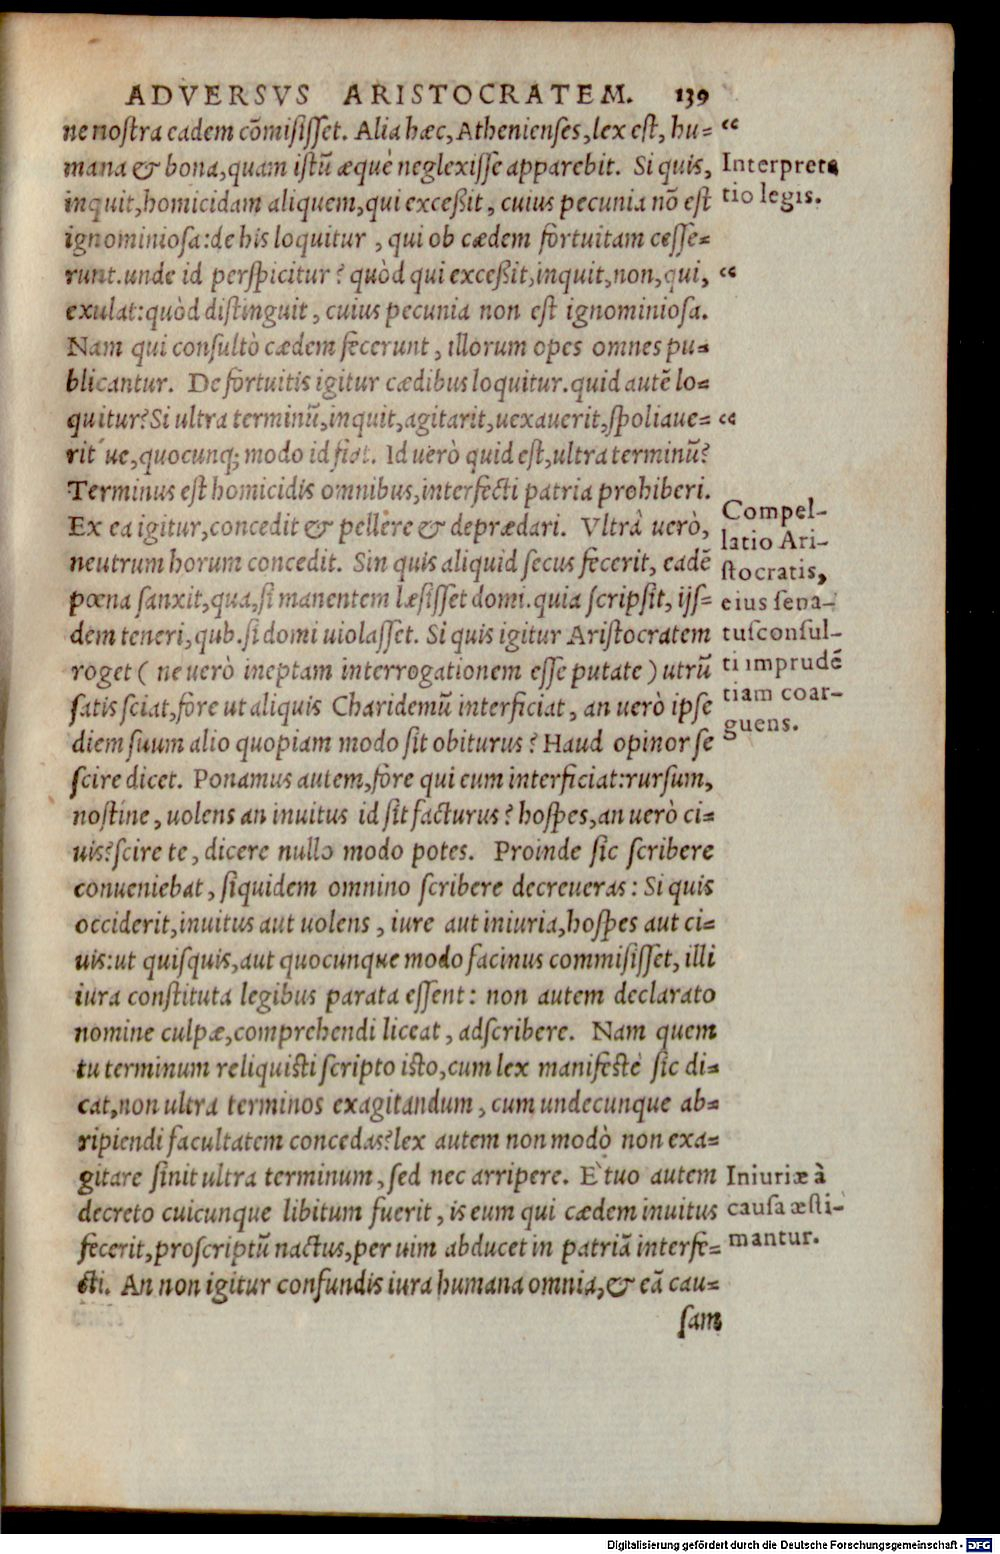 ADVERSVS ARISTOCRATEM. 139
ne nostra eadem cõmisisset. Alia hæc, Athenienses, lex est, hu= “
mana & bona, quam istũ æquè neglexisse apparebit. Si quis,
inquit, homicidam aliquem, qui exceßit, cuius pecunia nõ est
ignominiosa: de his loquitur, qui ob cædem fortuitam cesse=
runt. unde id perspicitur? quòd qui exceßit, inquit, non, qui, “
exulat: quòd distinguit, cuius pecunia non est ignominiosa.
Nam qui consultò cædem fecerunt, illorum opes omnes pu=
blicantur. De fortuitis igitur cædibus loquitur. quid autẽ lo=
quitur? Si ultra terminũ, inquit, agitarit, uexauerit, spoliaue= “
rit ue, quocunq; modo id fiat. Id uerò quid est, ultra terminũ?
Terminus est homicidis omnibus, interfecti patria prohiberi.
Ex ea igitur, concedit & pellere & deprædari. Vltrà uerò,
neutrum horum concedit. Sin quis aliquid secus fecerit, eadẽ
pœna sanxit, qua, si manentem læsisset domi. quia scripsit, ijs=
dem teneri, quib. si domi uiolasset. Si quis igitur Aristocratem
roget ( ne uerò ineptam interrogationem esse putate ) utrũ
satis sciat, fore ut aliquis Charidemũ interficiat, an uerò ipse
diem suum alio quopiam modo sit obiturus? Haud opinor se
scire dicet. Ponamus autem, fore qui eum interficiat: rursum,
nostine, uolens an inuitus id sit facturus? hospes, an uerò ci=
uis? scire te, dicere nullo modo potes. Proinde sic scribere
conueniebat, siquidem omnino scribere decreueras: Si quis
occiderit, inuitus aut uolens, iure aut iniuria, hospes aut ci=
uis: ut quisquis, aut quocunque modo facinus commisisset, illi
iura constituta legibus parata essent: non autem declarato
nomine culpæ, comprehendi liceat, adscribere. Nam quem
tu terminum reliquisti scripto isto, cum lex manifestè sic di=
cat, non ultra terminos exagitandum, cum undecunque ab=
ripiendi facultatem concedas? lex autem non modò non exa=
gitare sinit ultra terminum, sed nec arripere. È tuo autem
decreto cuicunque libitum fuerit, is eum qui cædem inuitus
fecerit, proscriptũ nactus, per uim abducet in patriã interfe=
cti. An non igitur confundis iura humana omnia, & eã cau=
sam
Interpreta
tio legis.
Compel-
latio Ari-
stocratis,
eius sena-
tusconsul-
ti imprudẽ
tiam coar-
guens.
Iniuriæ à
causa æsti-
mantur.
Digitalisierung gefördert durch die Deutsche Forschungsgemeinschaft - DFG